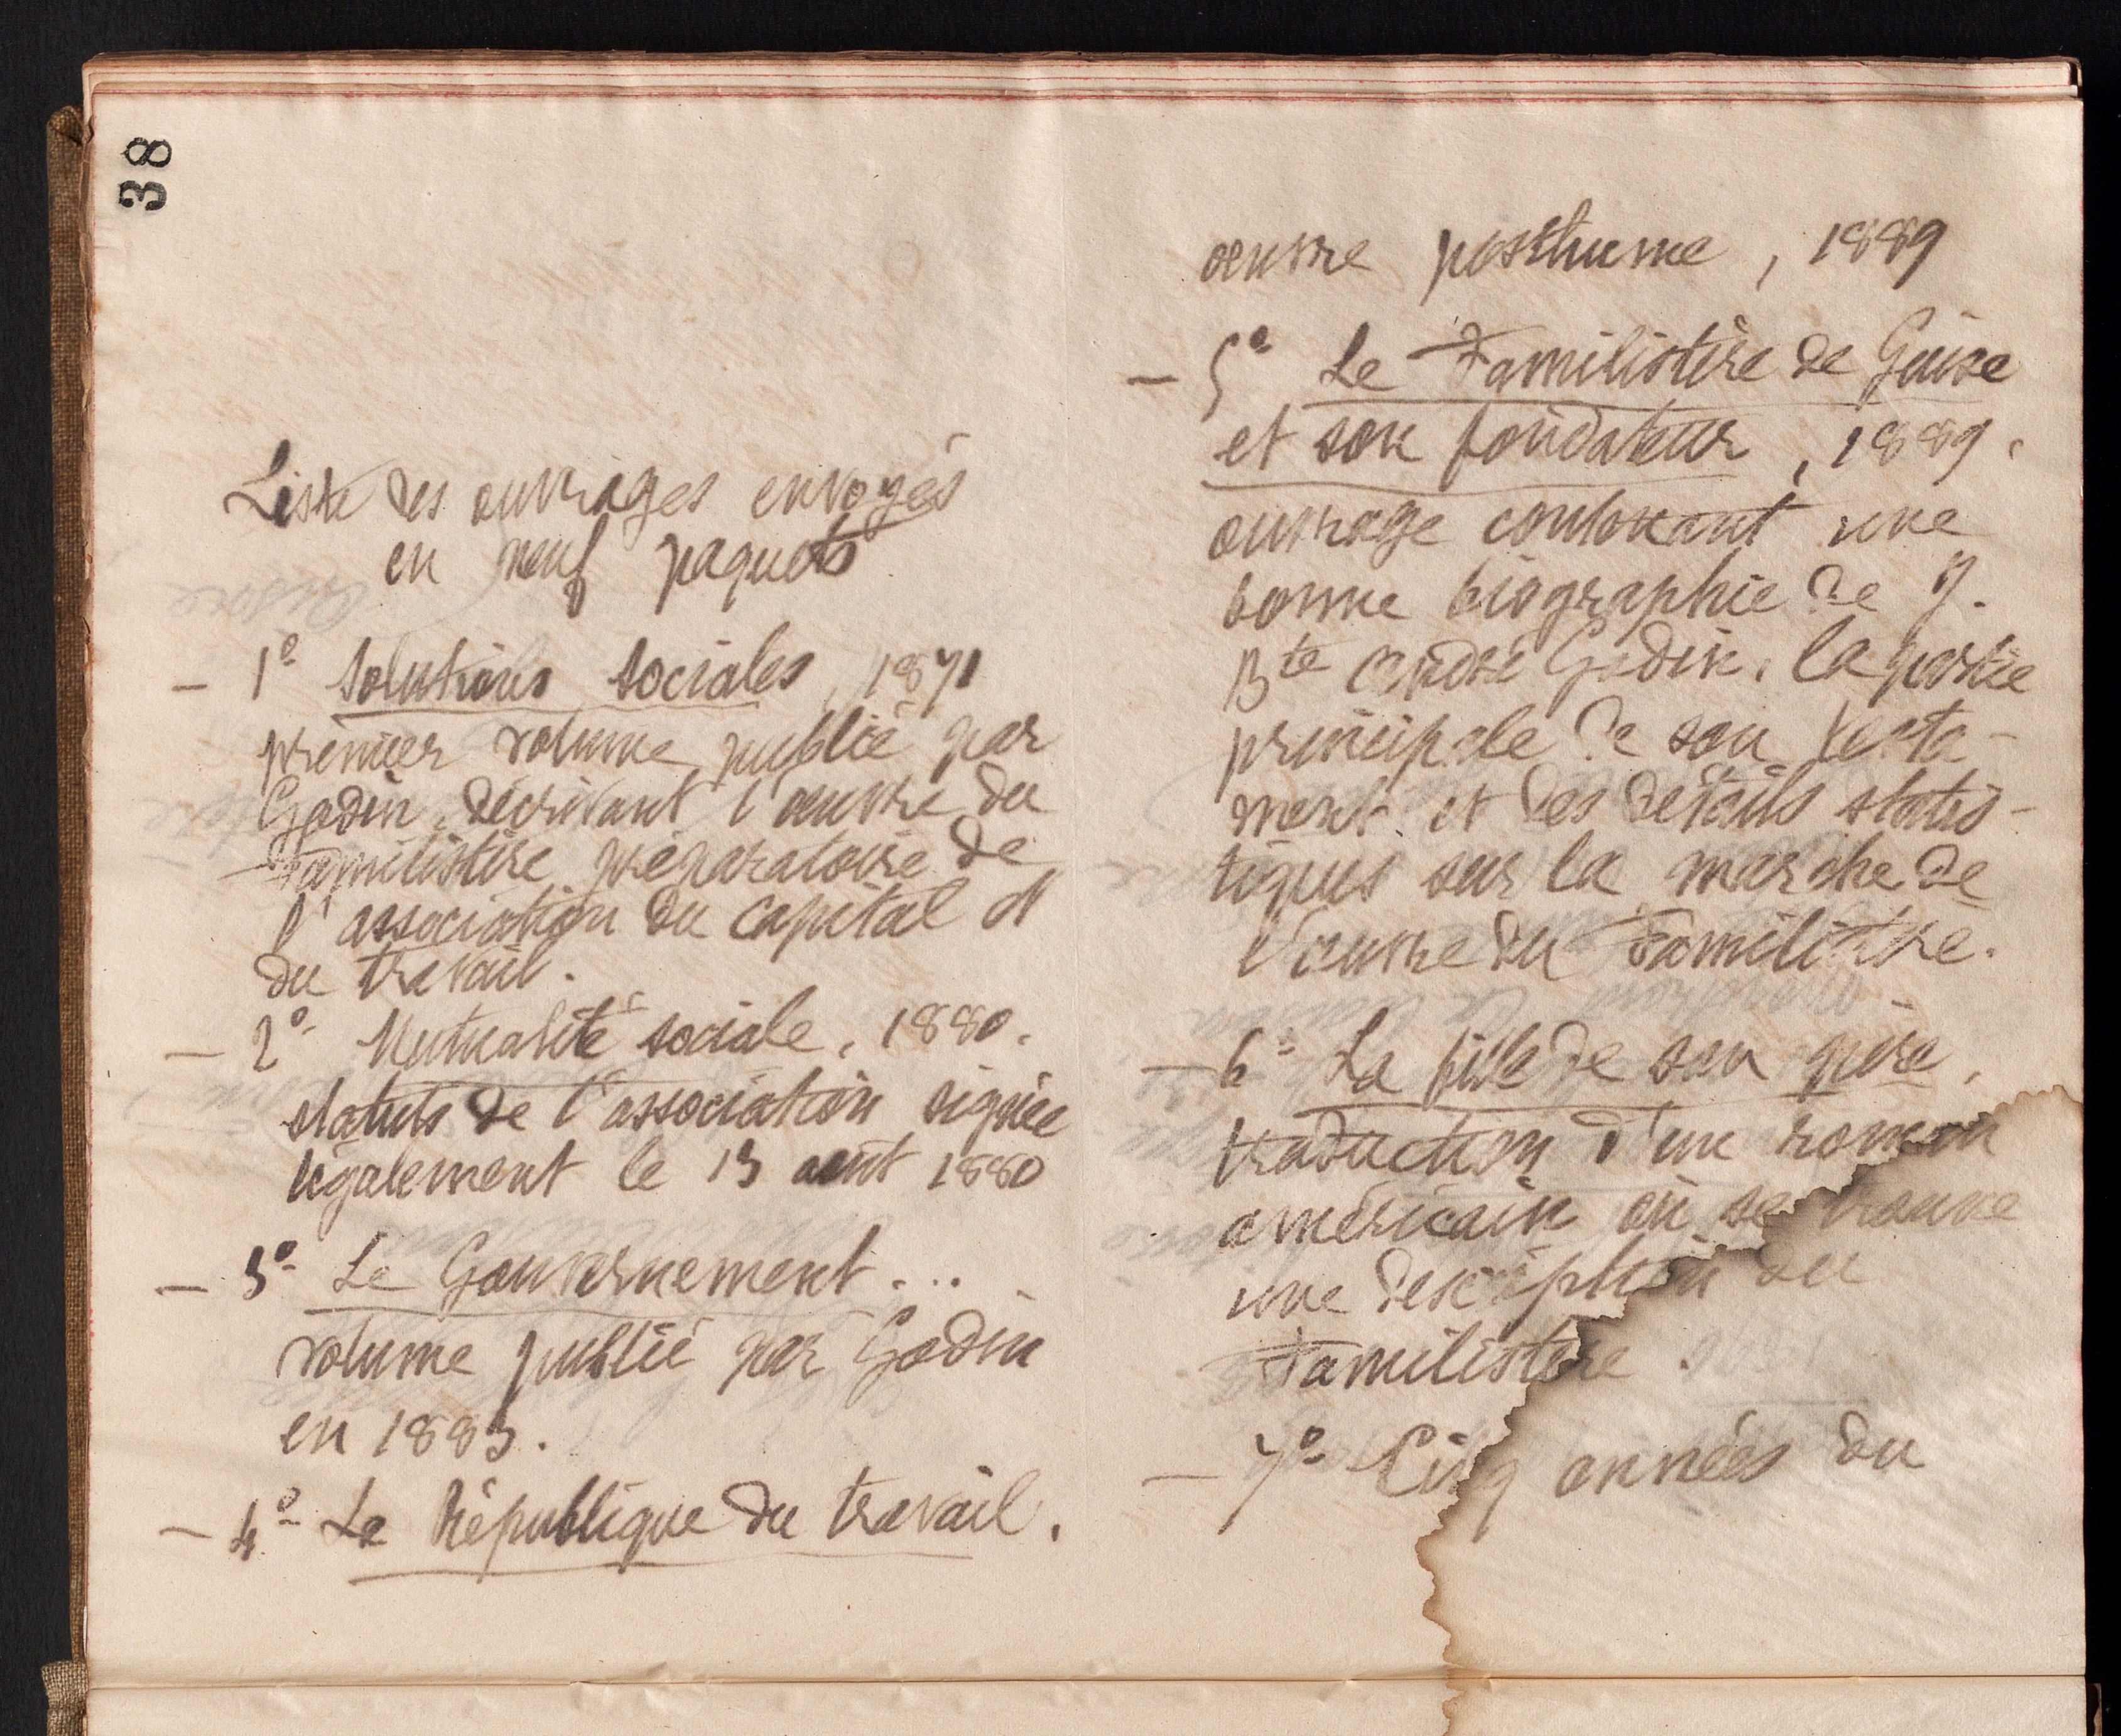 38
Liste des ouvrages envoyés
en neuf paquets
– 1º Solutions sociales, 1871
premier volume publié par
Godin, décrivant l'œuvre du
Familistère préparatoire de
l'association du capital et
du travail.
– 2º Mutualité sociale, 1880.
statuts de l'association signée
légalement le 13 août 1880
– 3º Le Gouvernement...
volume publié par Godin
en 1883.
– 4º La République du travail.
œuvre posthume, 1889
– 5º Le Familistère de Guise
et son fondateur, 1889.
ouvrage contenant une
bonne biographie de J.
Bte André Godin, la partie
principale de son testa-
ment et des détails statis-
tiques sur la marche de
l'œuvre du Familistère.
– 6º La fille de son père,
traduction d'un roman
américain où se trouve
une description du
Familistère.
– 7º Cinq années du